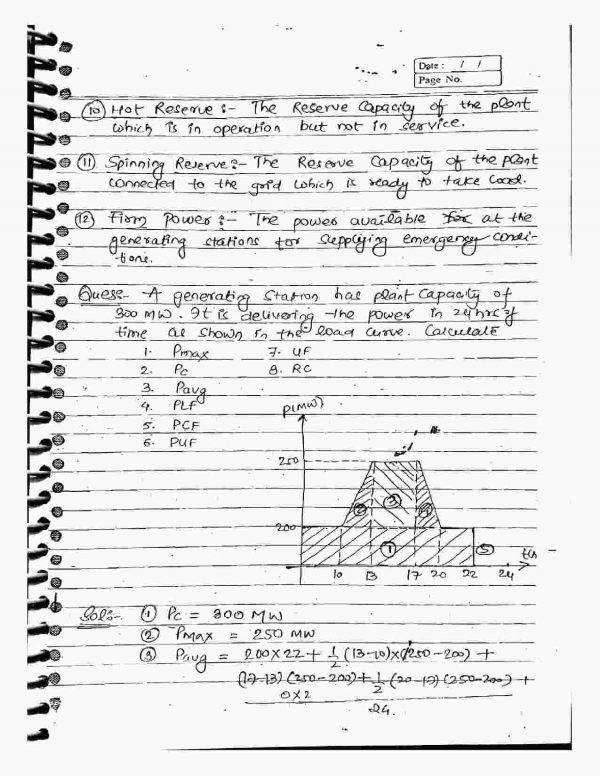 Date : / /
Page No.
(10) Hot Reserve :- The Reserve Capacity of the plant
which is in operation but not in service.
(11) Spinning Reserve :- The Reserve Capacity of the plant
connected to the grid which is ready to take load.
(12) Firm Power :- The power available for at the
generating stations for supplying emergency condi-
tions.
Ques:- A generating station has plant capacity of
300 MW. It is delivering the power in 24 hrs of
time as shown in the load curve. Calculate
1. Pmax 7. UF
2. Pc 8. RC
3. Pavg
4. PLF
5. PCF
6. PUF
P(MW)
250
200
② ③ ④
① ⑤
10 13 17 20 22 24
Sol:- ① Pc = 300 MW
② Pmax = 250 MW
③ Pavg = 200×22 + 1/2 (13-10)×(250-200) +
(17-13) (250-200) + 1/2 (20-17) (250-200) +
0×2
24.